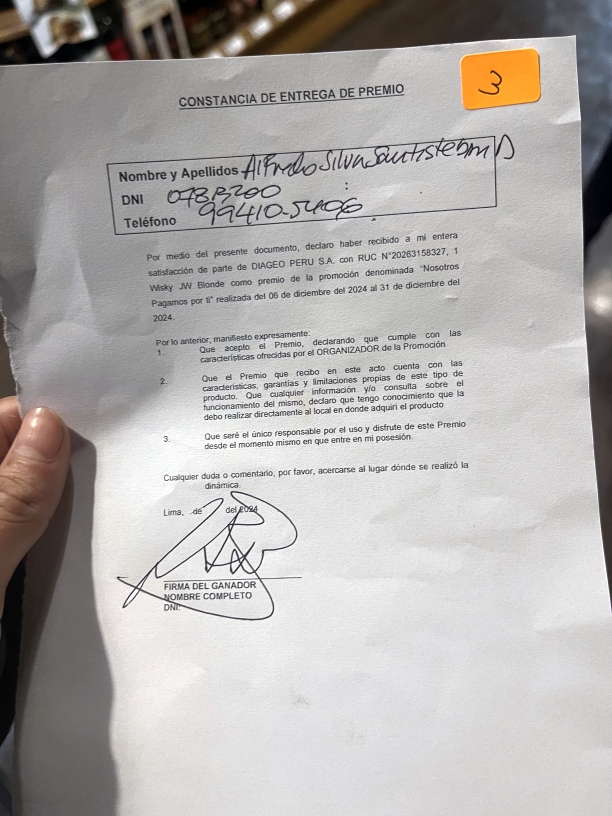 3
CONSTANCIA DE ENTREGA DE PREMIO
Nombre y Apellidos Alfredo Silva Santisteban D
DNI
Teléfono 99410-5406
Por medio del presente documento, declaro haber recibido a mi entera
satisfacción de parte de DIAGEO PERU S.A. con RUC N°20263158327, 1
Wisky JW Blonde como premio de la promoción denominada "Nosotros
Pagamos por ti" realizada del 06 de diciembre del 2024 al 31 de diciembre del
2024.
Por lo anterior, manifiesto expresamente:
1. Que acepto el Premio, declarando que cumple con las
características ofrecidas por el ORGANIZADOR de la Promoción
2. Que el Premio que recibo en este acto cuenta con las
características, garantías y limitaciones propias de este tipo de
producto. Que cualquier información y/o consulta sobre el
funcionamiento del mismo, declaro que tengo conocimiento que la
debo realizar directamente al local en donde adquirí el producto
3. Que seré el único responsable por el uso y disfrute de este Premio
desde el momento mismo en que entre en mi posesión.
Cualquier duda o comentario, por favor, acercarse al lugar dónde se realizó la
dinámica.
Lima, de del 2024
FIRMA DEL GANADOR
NOMBRE COMPLETO
DNI: